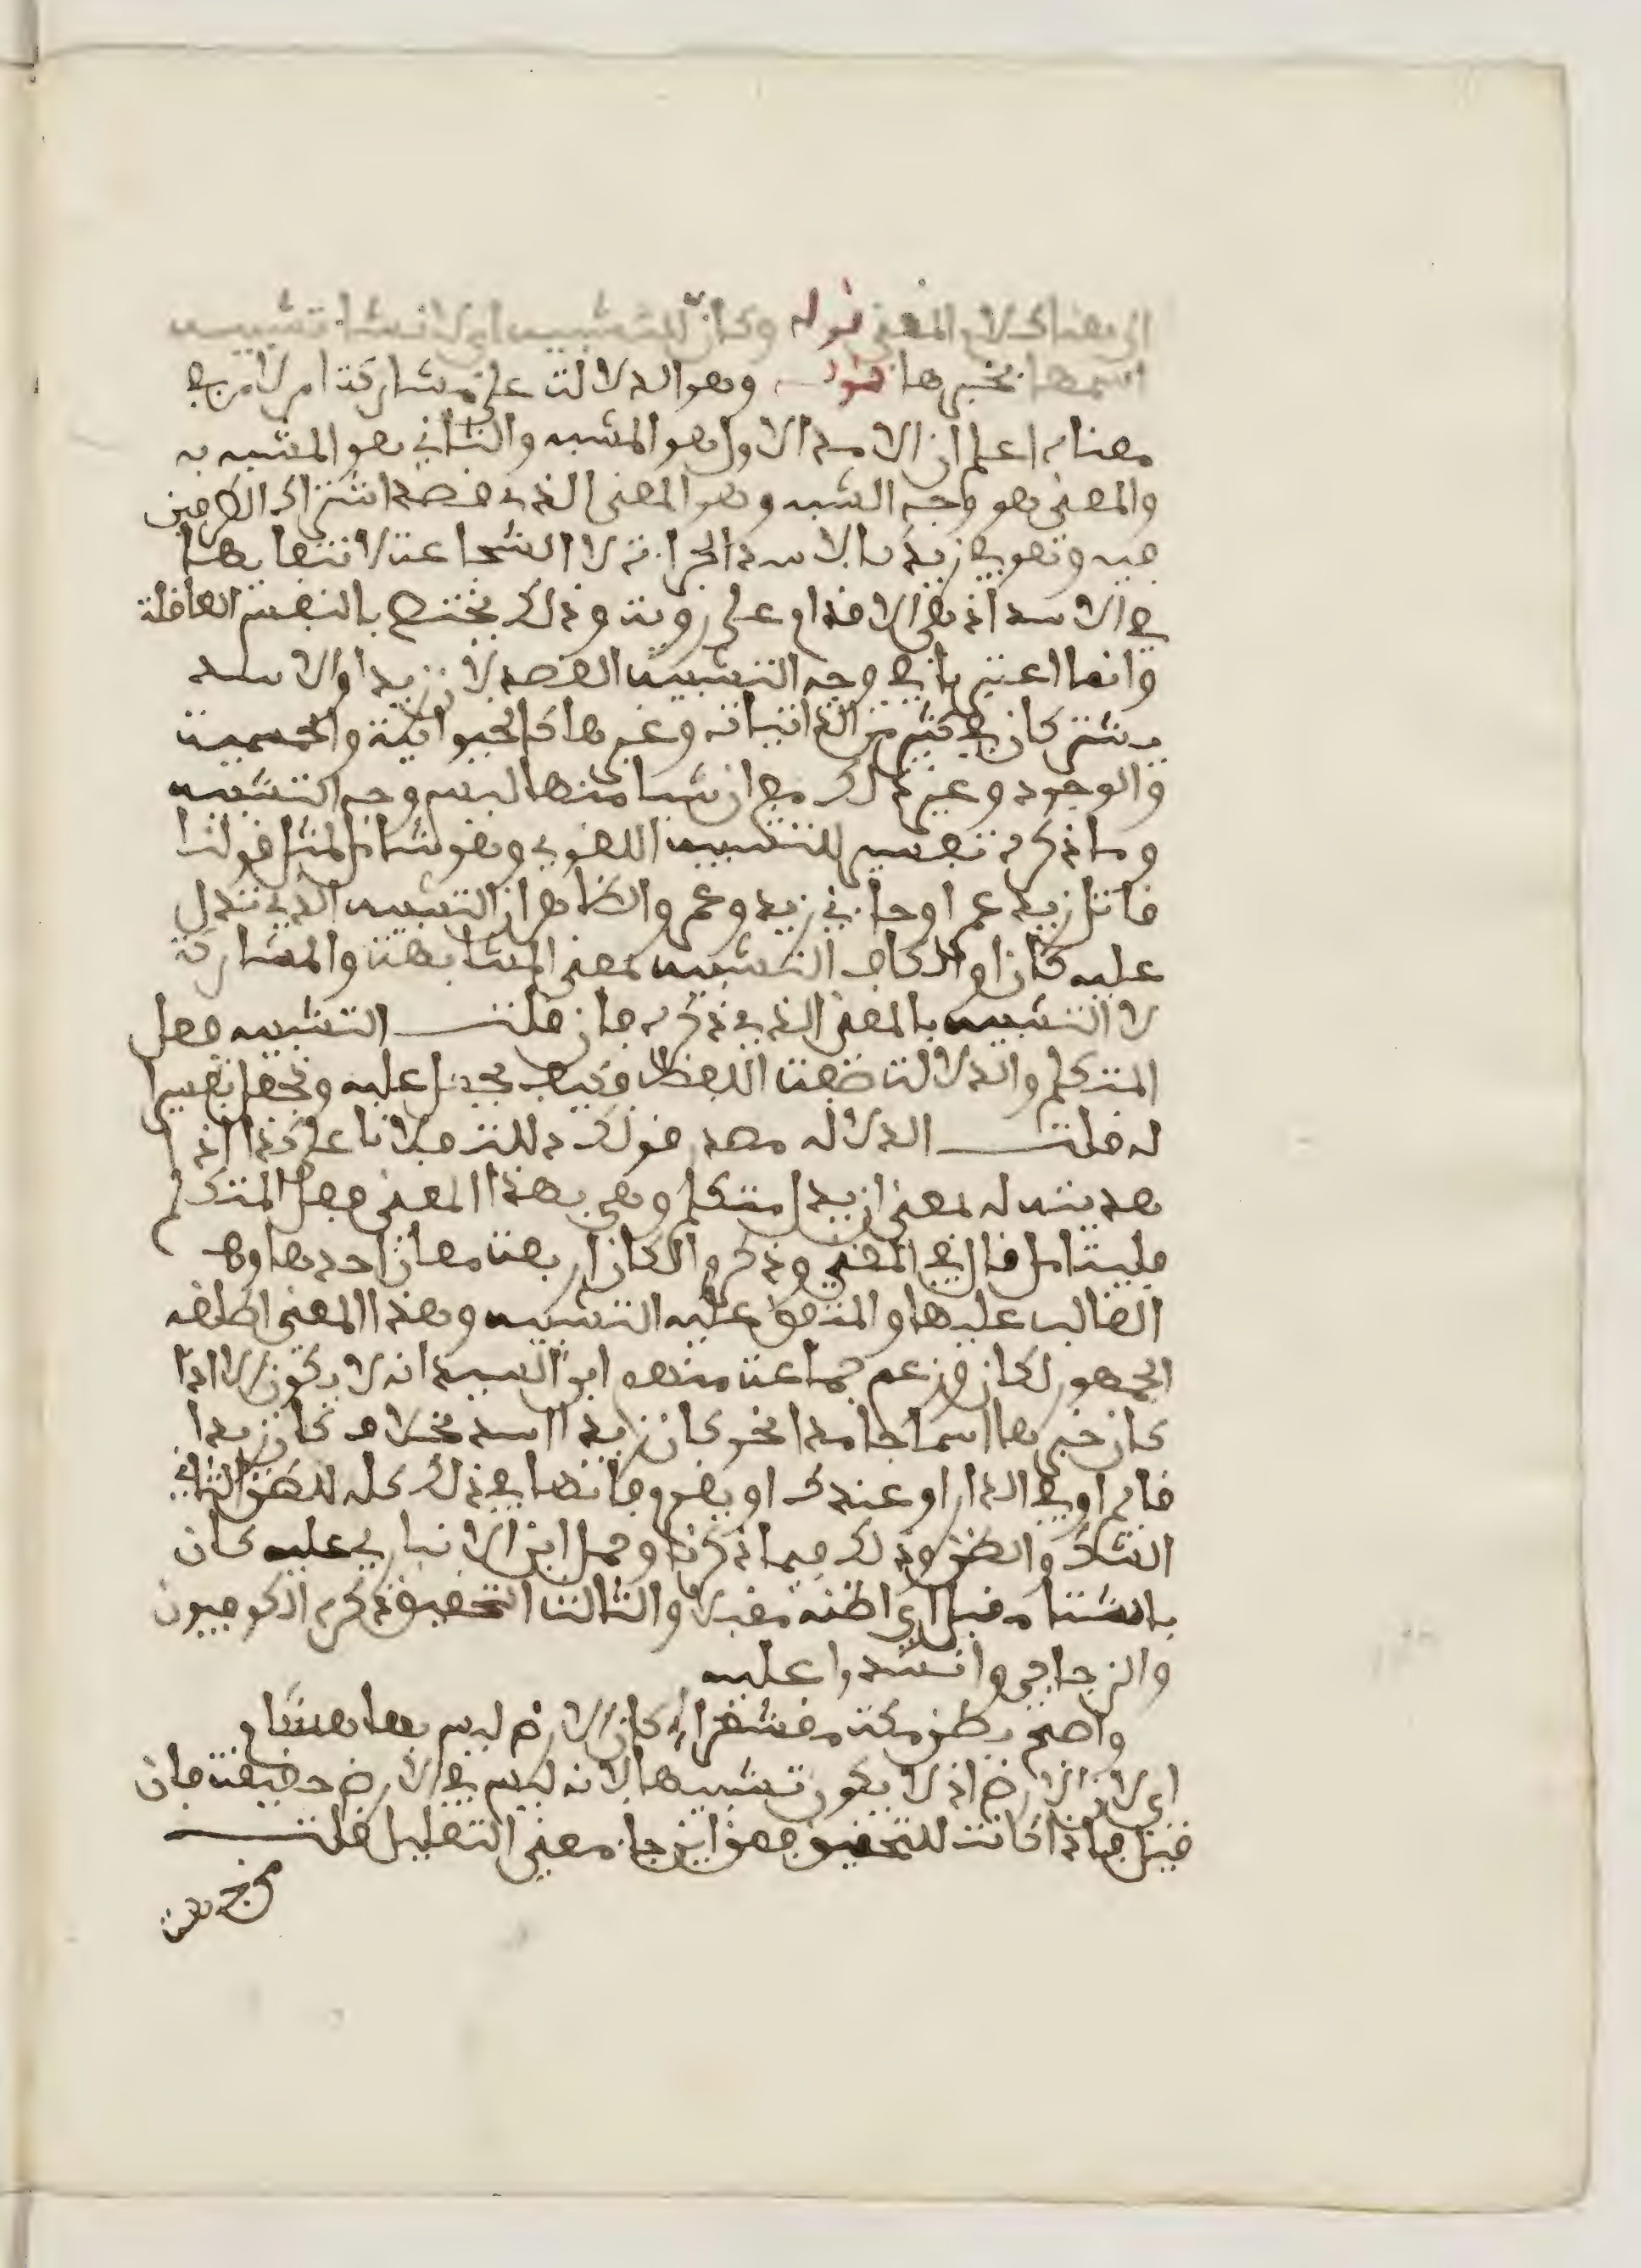 انى هنا كلام المغني قوله وكأنّ للتشبيه اي لانشا تشبيه
اسمها بخبرها قوله وهو الدلالة على مشاركة امر لامر في
معناه اعلم ان الامر الاول هو المشبه والثاني هو المشبه به
والمعنى هو وجه الشبه وهو المعنى الذي قصد اشتراك الطرفين
فيه وهو في زيد كالاسد الجراءة لا الشجاعة لانتفايها
في الاسد اذ هي الاقدام على روية وذلك يختص بالنفس العاقلة
وانما اعتبر في وجه التشبيه القصد لان زيدا والاسد
يشتركان في كثير من الذاتيات وغيرها كالحيوانية والجسمية
والوجود وغير ذلك مع ان شيا منها ليس وجه التشبيه
وما ذكره تفسير للتشبيه اللغوي وهو شامل لمثل قولنا
قاتل زيد عمرا وجاءني زيد وعمرو والظاهر ان التشبيه الذي تدل
عليه كان او الكاف التشبيه بمعنى المشابهة والمشاركة
لا التشبيه بالمعنى الذي ذكره فان قلت التشبيه فعل
المتكلم والدلالة صفة اللفظ فكيف يحمل عليه وتجعل تفسيرا
له قلت الدلالة مصدر قولك دللت فلانا على كذا اذا
هديته له بمعنى ان يدل متكلم وهي بهذا المعنى فعل المتكلم
فليتامل قال في المغني وذكروا لكان اربعة معان احدها وهو
الغالب عليها والمتفق عليه التشبيه وهذا المعنى اطلقه
الجمهور لكان وزعم جماعة منهم ابن السيد انه لا يكون الا اذا
كان خبرها اسما جامدا نحو كان زيدا اسد بخلاف كان زيدا
قائم او في الدار او عندك او يقوم فانها في ذلك كله للظن الثاني
الشك والظن وذلك فيما ذكرنا وحمل ابن الانباري عليه كان
بالشتا مقبل اي اظنه مقبلا والثالث التحقيق ذكره الكوفيون
والزجاجي وانشدوا عليه
واصبح بطن مكة مقشعرا كان الارض ليس بها هشام
اي لان الارض اذ لا يكون تشبيها لانه ليس في الارض حقيقة فان
قيل فاذا كانت للتحقيق فمن اين جاء معنى التعليل قلت
من جهة